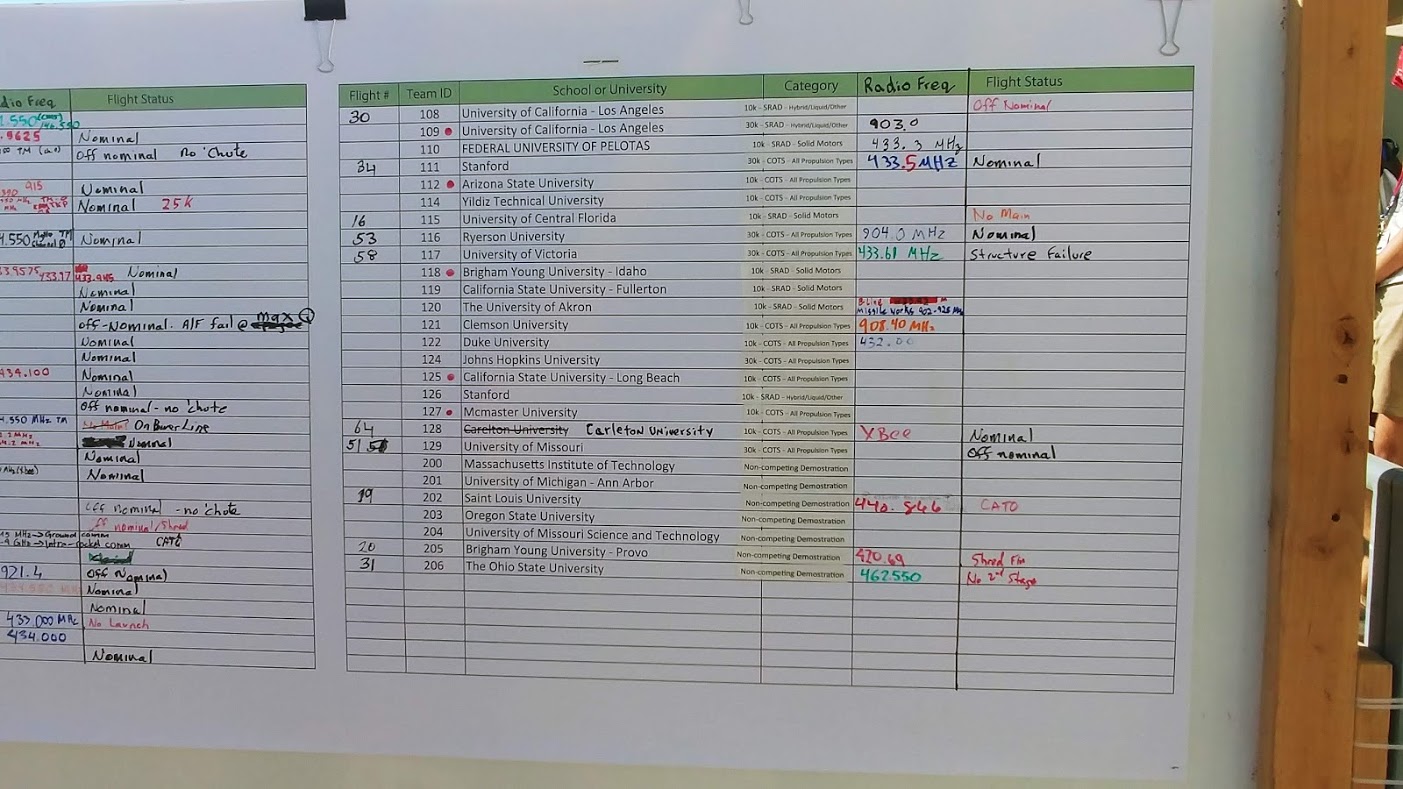 Radio Freq Flight Status
Nominal
Off nominal No 'Chute
915 Nominal
Nominal 25K
Nominal
433.17 433.945 Nominal
Nominal
Nominal
off-Nominal. A/F fail @ max Q
Nominal
Nominal
434.100 Nominal
Nominal
Off nominal - no 'chute
.550 MHz TM No Main On Buver Line
Nominal
Nominal
Nominal
off nominal - no 'chute
off nominal/Shred
MHz→Ground comm CATO
GHz→Intra-rocket comm
921.4 Off Nominal
Nominal
Nominal
433.000 MHz No Launch
434.000
Nominal
Flight # Team ID School or University Category Radio Freq Flight Status
30 108 University of California - Los Angeles 10k - SRAD - Hybrid/Liquid/Other Off Nominal
109 University of California - Los Angeles 30k - SRAD - Hybrid/Liquid/Other 903.0
110 FEDERAL UNIVERSITY OF PELOTAS 10k - SRAD - Solid Motors 433.3 MHz
34 111 Stanford 30k - COTS - All Propulsion Types 433.5MHz Nominal
112 Arizona State University 10k - COTS - All Propulsion Types
114 Yildiz Technical University 10k - COTS - All Propulsion Types
16 115 University of Central Florida 10k - SRAD - Solid Motors No Main
53 116 Ryerson University 30k - COTS - All Propulsion Types 904.0 MHz Nominal
58 117 University of Victoria 30k - COTS - All Propulsion Types 433.61 MHz Structure Failure
118 Brigham Young University - Idaho 10k - SRAD - Solid Motors
119 California State University - Fullerton 10k - SRAD - Solid Motors
120 The University of Akron 10k - SRAD - Solid Motors Missile Works 902-928 MHz
121 Clemson University 10k - COTS - All Propulsion Types 908.40 MHz
122 Duke University 10k - COTS - All Propulsion Types 432.00
124 Johns Hopkins University 30k - COTS - All Propulsion Types
125 California State University - Long Beach 10k - COTS - All Propulsion Types
126 Stanford 10k - SRAD - Hybrid/Liquid/Other
127 Mcmaster University 10k - COTS - All Propulsion Types
64 128 Carelton University Carleton University 10k - COTS - All Propulsion Types XBee Nominal
51 129 University of Missouri 30k - COTS - All Propulsion Types Off nominal
200 Massachusetts Institute of Technology Non-competing Demostration
201 University of Michigan - Ann Arbor Non-competing Demostration
19 202 Saint Louis University Non-competing Demostration 440.846 CATO
203 Oregon State University Non-competing Demostration
204 University of Missouri Science and Technology Non-competing Demostration
20 205 Brigham Young University - Provo Non-competing Demostration 420.69 Shred Fin
31 206 The Ohio State University Non-competing Demostration 462.550 No 2nd Stage